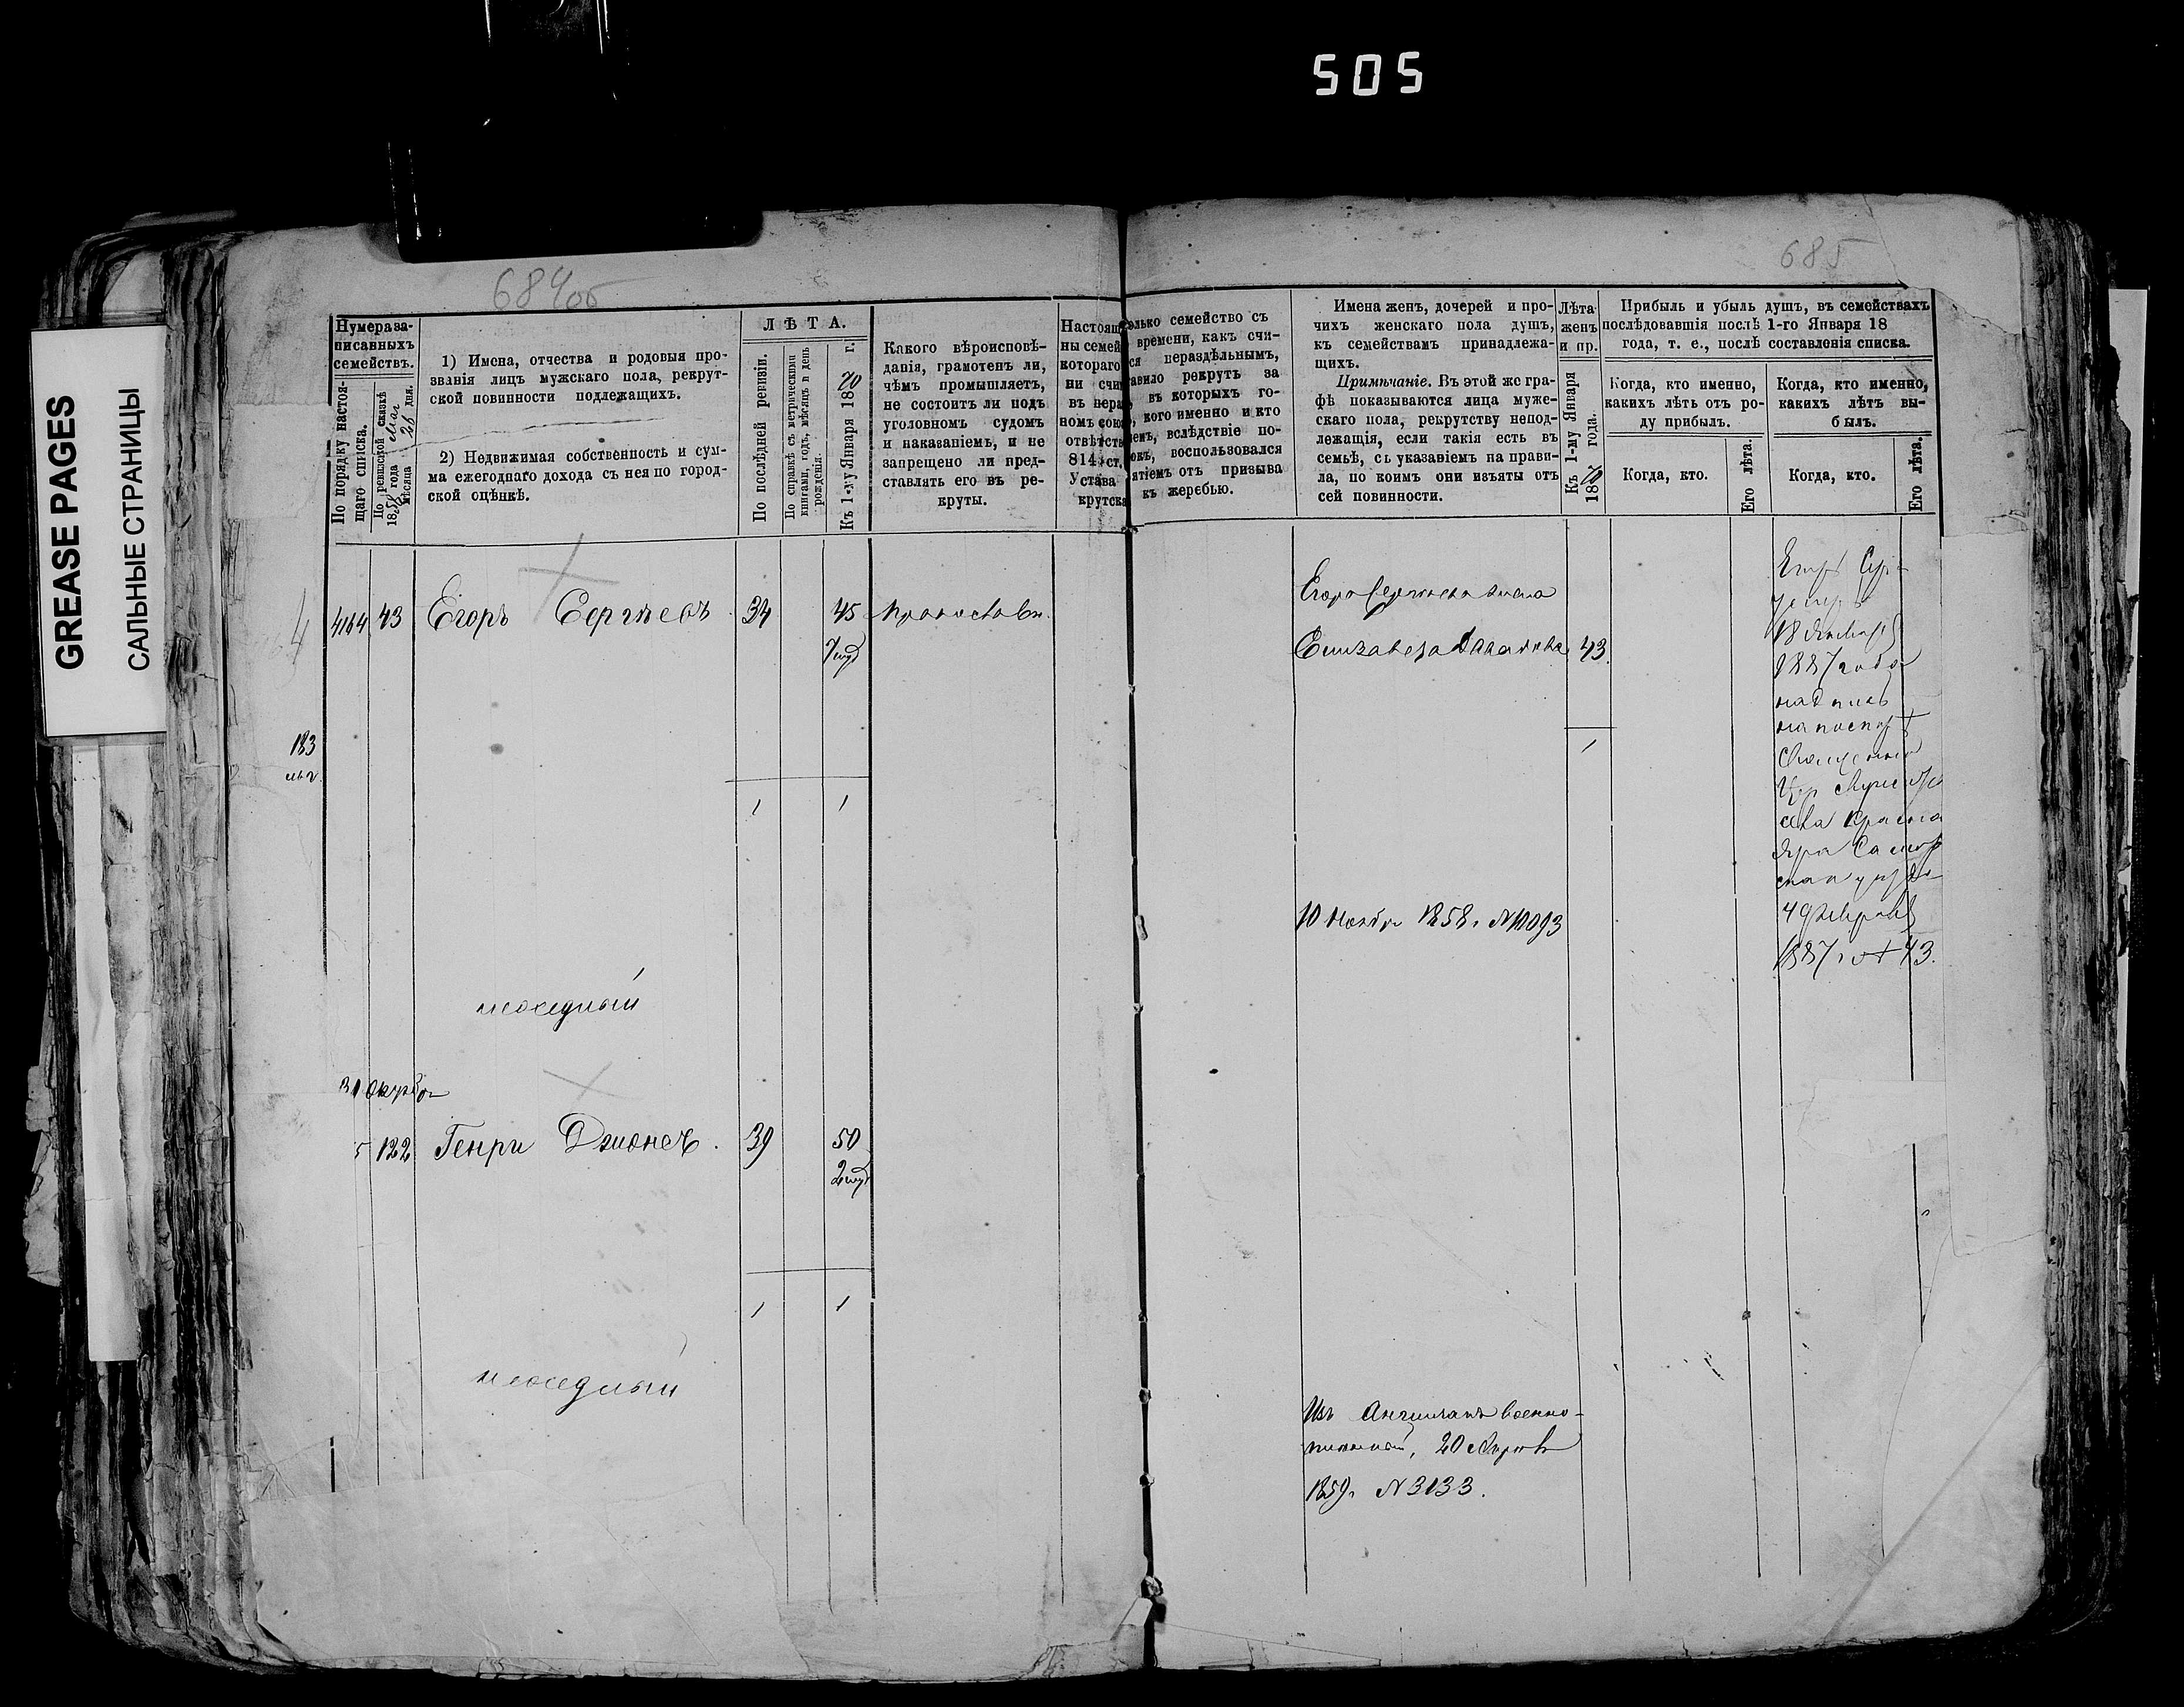 505
GREASE PAGES
САЛЬНЫЕ СТРАНИЦЫ
684об
685
Нумера за-
писанныхъ
семействъ.
По порядку настоя-
щаго списка.
По ревизской сказкѣ
1858 года Мая
мѣсяца 26 дня.
1) Имена, отчества и родовыя про-
званія лицъ мужскаго пола, рекрут-
ской повинности подлежащихъ.
2) Недвижимая собственность и сум-
ма ежегоднаго дохода съ нея по город-
ской оцѣнкѣ.
ЛѢТА.
По послѣдней ревизіи.
По справкѣ съ метрическими
книгами, годъ, мѣсяцъ и день
рожденія.
Къ 1-му Января 1870 г.
Какого вѣроисповѣ-
данія, грамотенъ ли,
чѣмъ промышляетъ,
не состоитъ ли подъ
уголовномъ судомъ
и наказаніемъ, и не
запрещено ли пред-
ставлять его въ ре-
круты.
Настоящ
ны семей
котораго
ни счи
въ нера
номъ сою
отвѣтств
814 ст.
Устава
крутска
олько семейство съ
времени, какъ счи-
ся нераздѣльнымъ,
авило рекрутъ за
въ которыхъ го-
, кого именно и кто
ленъ, вслѣдствіе по-
окъ, воспользовался
ятіемъ отъ призыва
къ жеребью.
Имена женъ, дочерей и про-
чихъ женскаго пола душъ,
къ семействамъ принадлежа-
щихъ.
Примѣчаніе. Въ этой же гра-
фѣ показываются лица муже-
скаго пола, рекрутству непод-
лежащія, если такія есть въ
семьѣ, съ указаніемъ на прави-
ла, по коимъ они изъяты отъ
сей повинности.
Лѣта
женъ
и пр.
Къ 1-му Января
1870 года.
Прибыль и убыль душъ, въ семействахъ
послѣдовавшія послѣ 1-го Января 18
года, т. е., послѣ составленія списка.
Когда, кто именно,
какихъ лѣтъ отъ ро-
ду прибылъ.
Когда, кто.
Его лѣта.
Когда, кто именно,
какихъ лѣтъ вы-
былъ.
Когда, кто.
Его лѣта.
4164 43 Егоръ Сергѣевъ 34 45 Православн.
183
1 1
Егора Сергѣева жена
Елизавета 43.
1
10 Ноября 1858 г. № 10093
Егоръ Сер-
умеръ
18 Января
1887 года
надпись
на паспорт
Священника
села Краснаго
Яра Самар
скаго уѣзда
4 Февраля
1887 г. № 43.
31 Октября
5 122 Генри Джонсъ. 39 50
1 1
Изъ Англичанъ военно-
плѣнный, 20 Апрѣля
1859 г. № 3133.